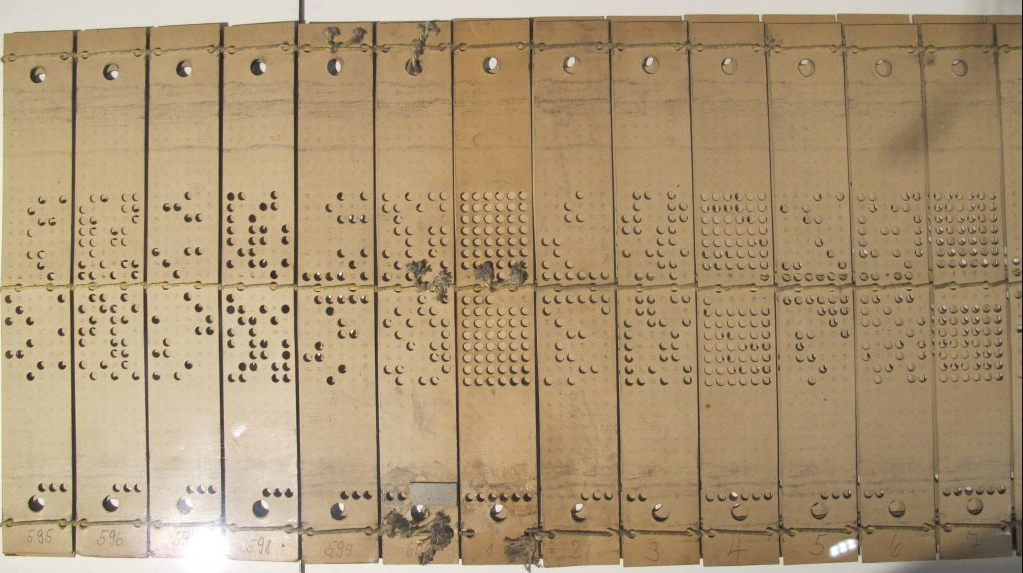 595 596 597 598 599 1 2 3 4 5 6 7